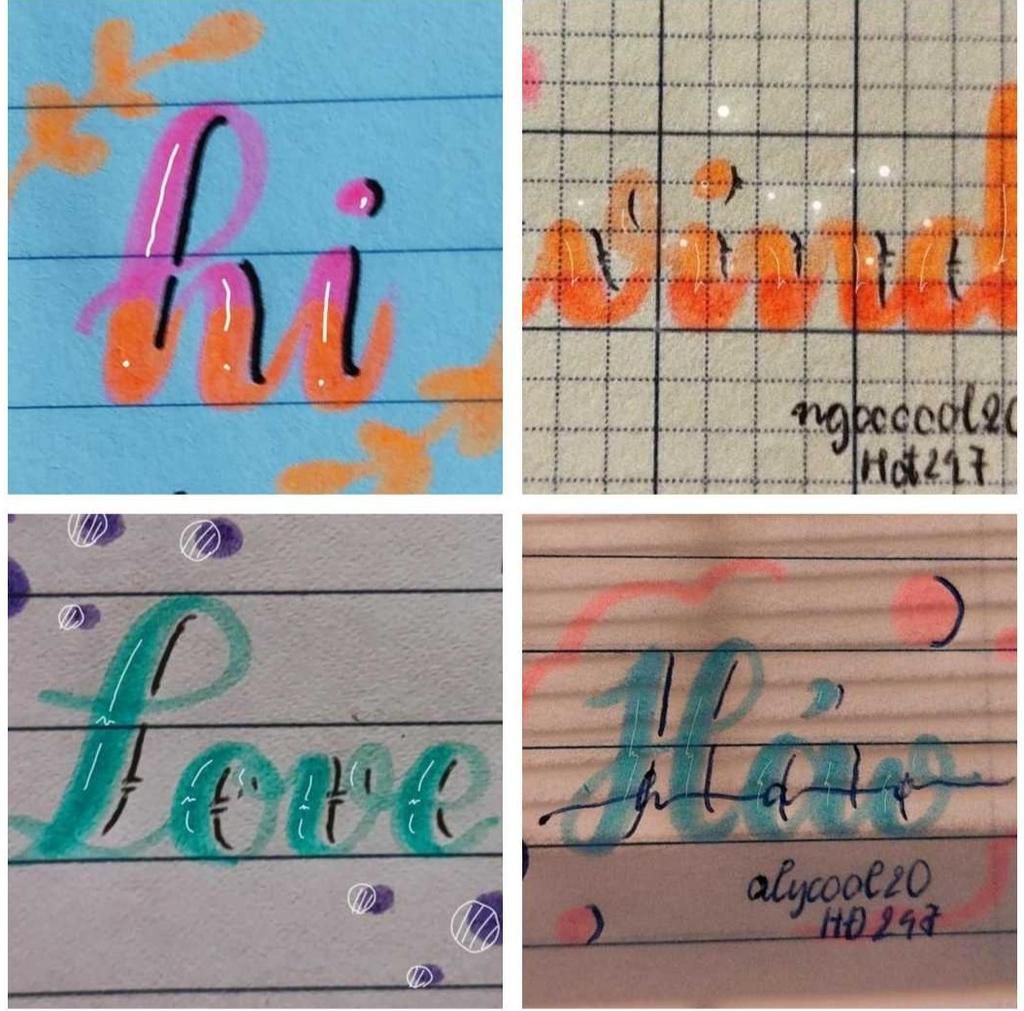 hi
ngocccol20
Hot247
Love
Hảo
alycool20
HĐ 247